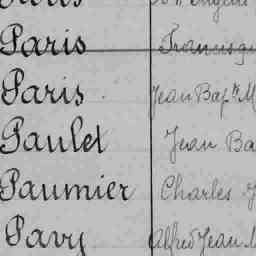 Paris
Paris Jean Bapte M
Paulet Jean Ba
Paumier Charles J
Pavy Alfred Jean M